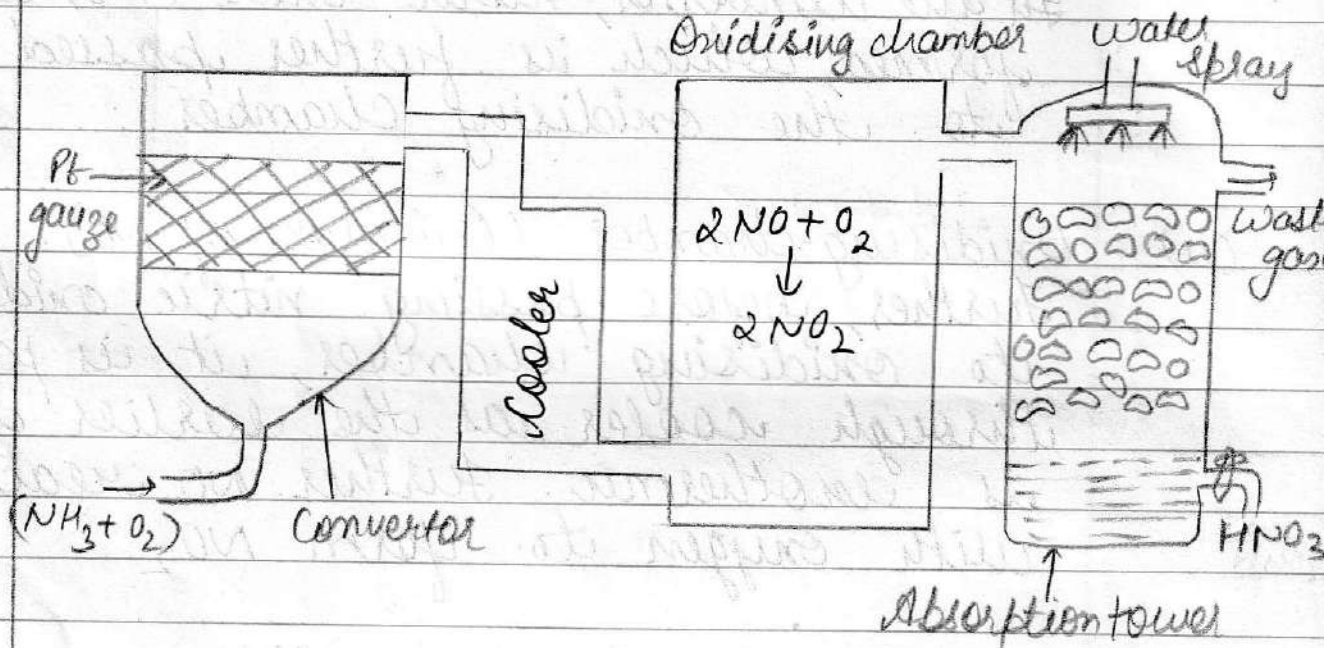 Oxidising chamber
Water
spray
Pt
gauze
2NO + O₂
↓
2NO₂
Wast
gas
Cooler
(NH₃ + O₂)
Convertor
HNO₃
Absorption tower